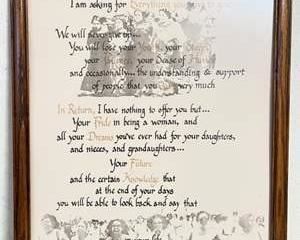 I am asking for Everything you have to give.
We will never give up...
You will lose your Youth, your Sleep,
your Patience, your Sense of
and occasionally... the understanding & support
of people that you love very much
In Return, I have nothing to offer you but...
Your Pride in being a woman, and
all your Dreams you've ever had for your daughters,
and nieces, and grandaughters...
Your Future
and the certain Knowledge that
at the end of your days
you will be able to look back and say that
in your life